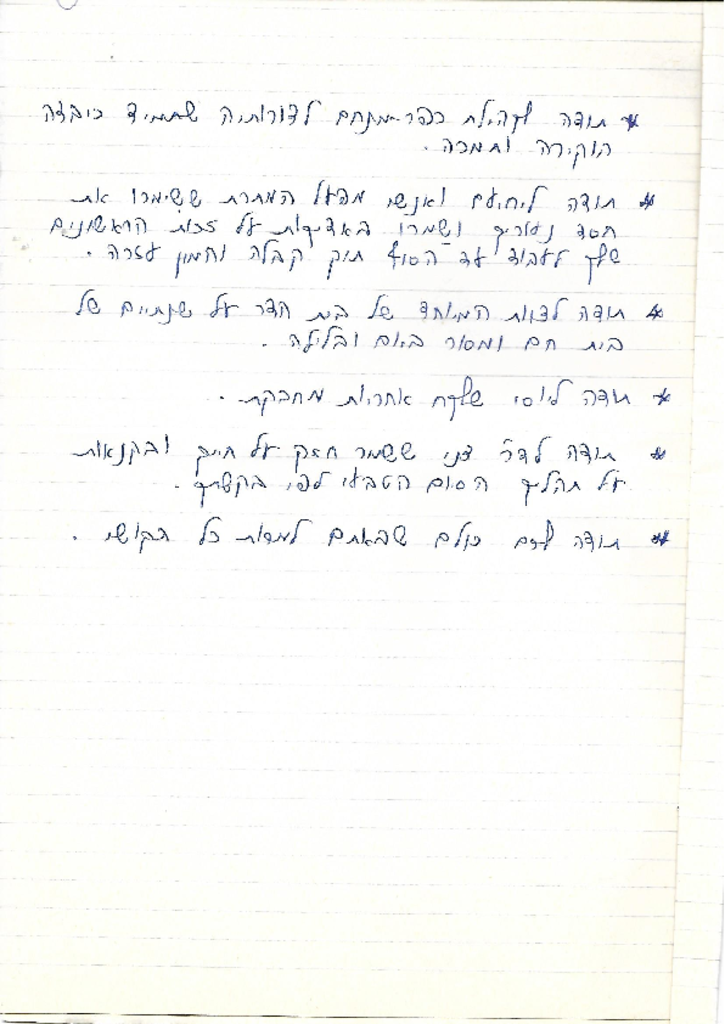 * תודה לקהילת כפר-מנחם לדורותיה שתמיד כיבדה
הוקירה ותמכה.
* תודה ליחיעם ואנשי מפעל המתכת ששימרו את
חסד נעוריך ושמרו באדיקות על זכות הראשונים
שלך לעבוד עד הסוף תוך קבלה והמון עזרה.
* תודה לצוות המיוחד של בית הדר על שנתיים של
בית חם ומסור ביום ובלילה.
* תודה ליוסי שלקח אחריות מחבקת.
* תודה לדר' צני ששמר חזק על חייך ובקנאות
על תהליך הסיום הטבעי לפי בקשתך.
* תודה לכם כולם שבאתם למרות כל הקושי.